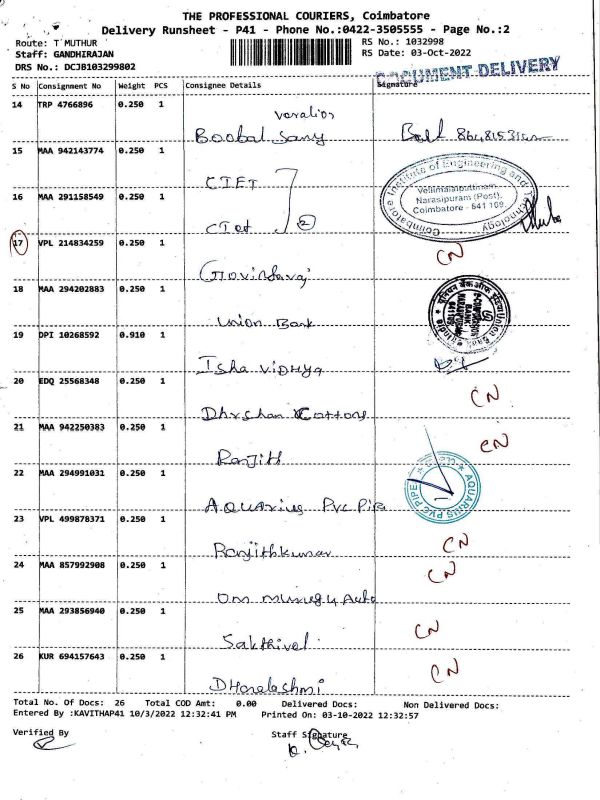 THE PROFESSIONAL COURIERS, Coimbatore
Delivery Runsheet - P41 - Phone No.:0422-3505555 - Page No.:2
Route: T MUTHUR
RS No.: 1032998
Staff: GANDHIRAJAN
RS Date: 03-Oct-2022
DRS No.: DCJB103299802
DOCUMENT DELIVERY
S No Consignment No Weight PCS Consignee Details Signature
14 TRP 4766896 0.250 1
Boobal Samy
15 MAA 942143774 0.250 1
CIET
Coimbatore Institute of Engineering and Technology
Vellimalaipattinam,
Narasipuram (Post),
Coimbatore - 641 109.
16 MAA 291158549 0.250 1
CIET 2
17 VPL 214834259 0.250 1 CN
Govindaraj
18 MAA 294202883 0.250 1
Union Bank
19 DPI 10268592 0.910 1
Isha VIDHYA
20 EDQ 25568348 0.250 1 CN
Dharshan Cottons
21 MAA 942250383 0.250 1 CN
Ranjith
22 MAA 294991031 0.250 1
AQUARIUS PVC PIPE
Aquarius Pvc Pipe
23 VPL 499878371 0.250 1
Ranjithkumar CN
24 MAA 857992908 0.250 1 CN
Om Murugu Auto
25 MAA 293856940 0.250 1 CN
Sakthivel
26 KUR 694157643 0.250 1 CN
Total No. Of Docs: 26 Total COD Amt: 0.00 Delivered Docs: Non Delivered Docs:
Entered By :KAVITHAP41 10/3/2022 12:32:41 PM Printed On: 03-10-2022 12:32:57
Verified By Staff Signature